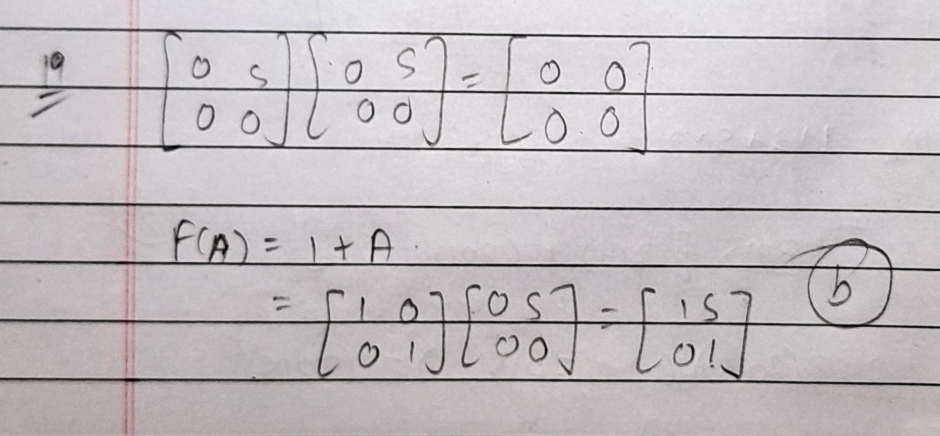 19 [0 5 0 0] [0 5 0 0] = [0 0 0 0]
F(A) = 1 + A.
= [1 0 0 1] [0 5 0 0] = [1 5 0 1] b